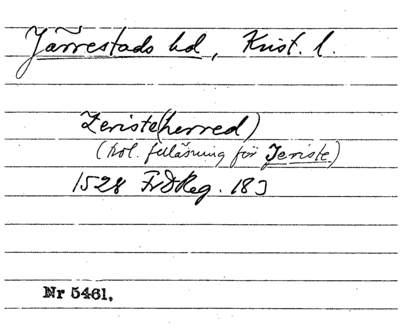 Järrestads hd, Krist. l.
Zeriste(herred)
(trol. felläsning för Jeriste)
1528 FrDReg. 183
Nr 5461.